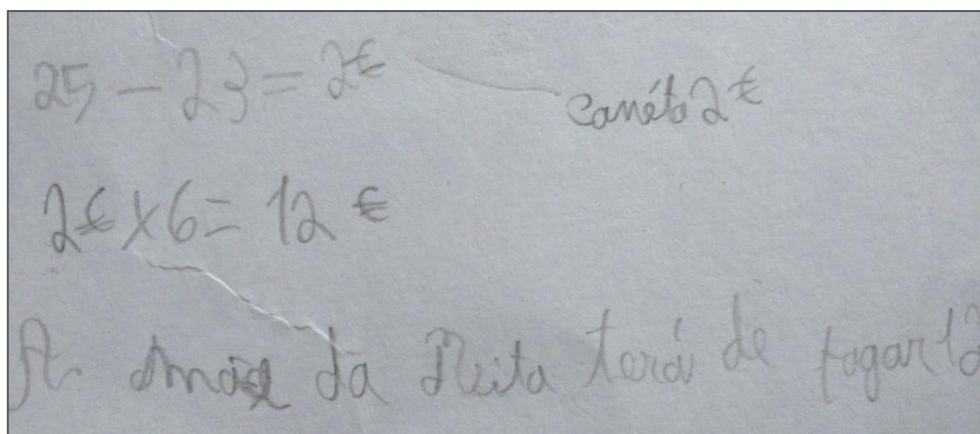 25 - 23 = 2€ canéta 2€
2€ x 6 = 12 €
R. A mãe da Rita terá de pagar 12